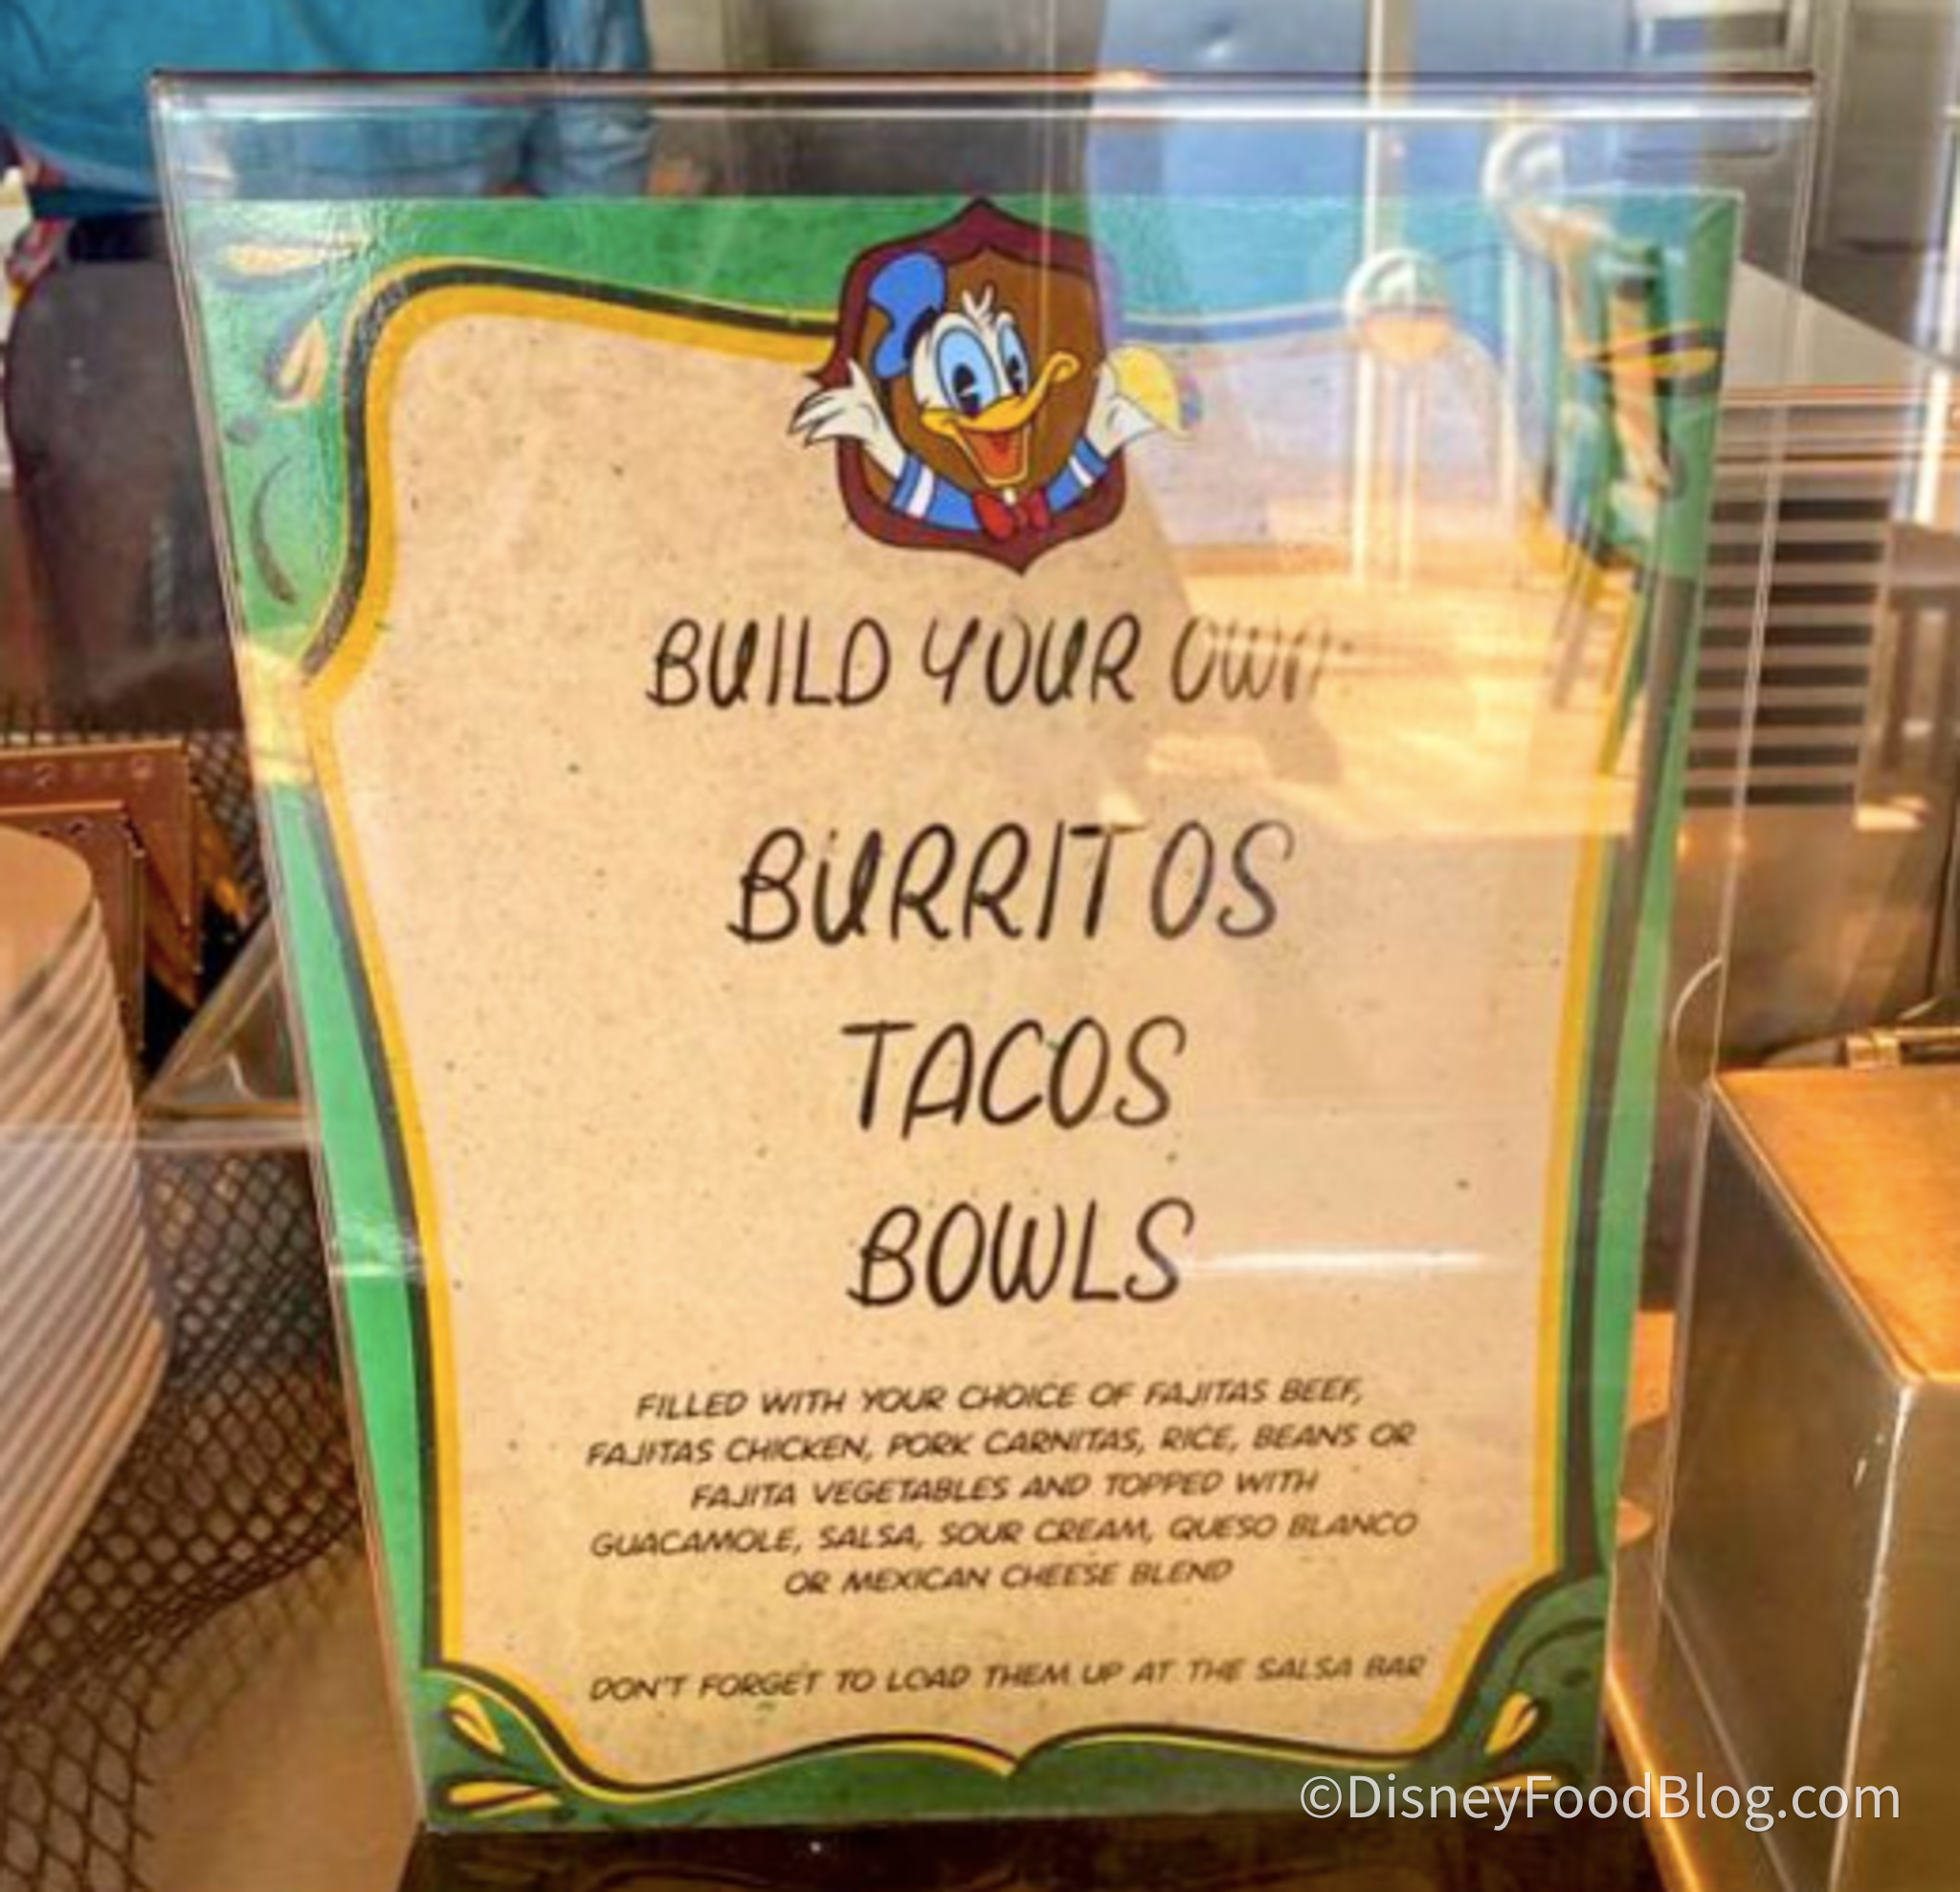 BUILD YOUR OWN
BURRITOS
TACOS
BOWLS
FILLED WITH YOUR CHOICE OF FAJITAS BEEF,
FAJITAS CHICKEN, PORK CARNITAS, RICE, BEANS OR
FAJITA VEGETABLES AND TOPPED WITH
GUACAMOLE, SALSA, SOUR CREAM, QUESO BLANCO
OR MEXICAN CHEESE BLEND
DON'T FORGET TO LOAD THEM UP AT THE SALSA BAR
©DisneyFoodBlog.com